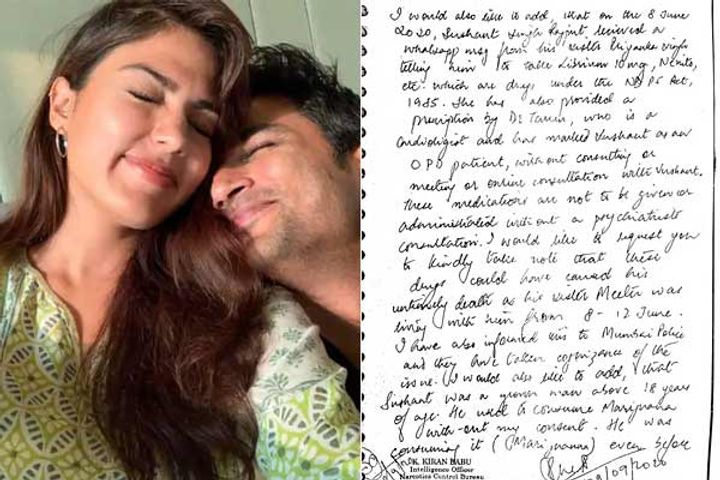 I would also like to add, that on the 8 June
2020, Sushant Singh Rajput, received a
whatsapp msg from his sister Priyanka Singh
telling him to take Librium 10 mg, Nexito,
etc. which are drugs under the NDPS Act,
1985. She has also provided a
prescription by Dr Tarun, who is a
cardiologist and has marked Sushant as an
OPD patient, without consulting or
meeting or online consultation with Sushant.
These medications are not to be given or
administrated without a psychiatrists
consultation. I would like to request you
to kindly take note that these
drugs could have caused his
untimely death as his sister Meetu was
living with him from 8 - 12 June.
I have also informed this to Mumbai Police
and they have taken cognizance of the
issue. I would also like to add, that
Sushant was a grown man above 18 years
of age. He used to consume Marijuana
with-out my consent. He was
consuming it (Marijuanna) even before
K. KIRAN BABU
Intelligence Officer
Narcotics Control Bureau
09/09/2020